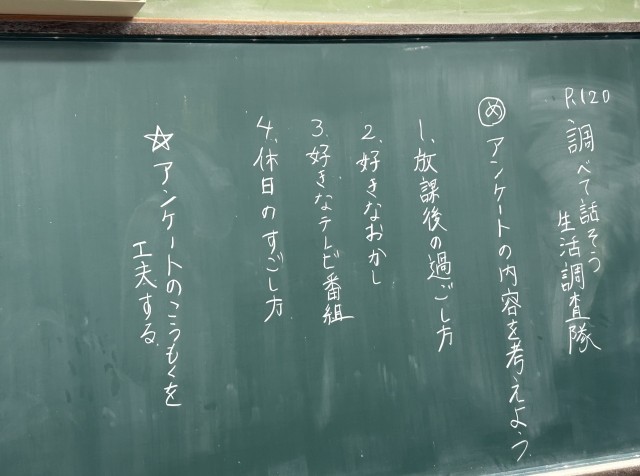 P.120
調べて話そう
生活調査隊
め アンケートの内容を考えよう
1、放課後の過ごし方
2、好きなおかし
3、好きなテレビ番組
4、休日のすごし方
☆アンケートのこうもくを
工夫する。